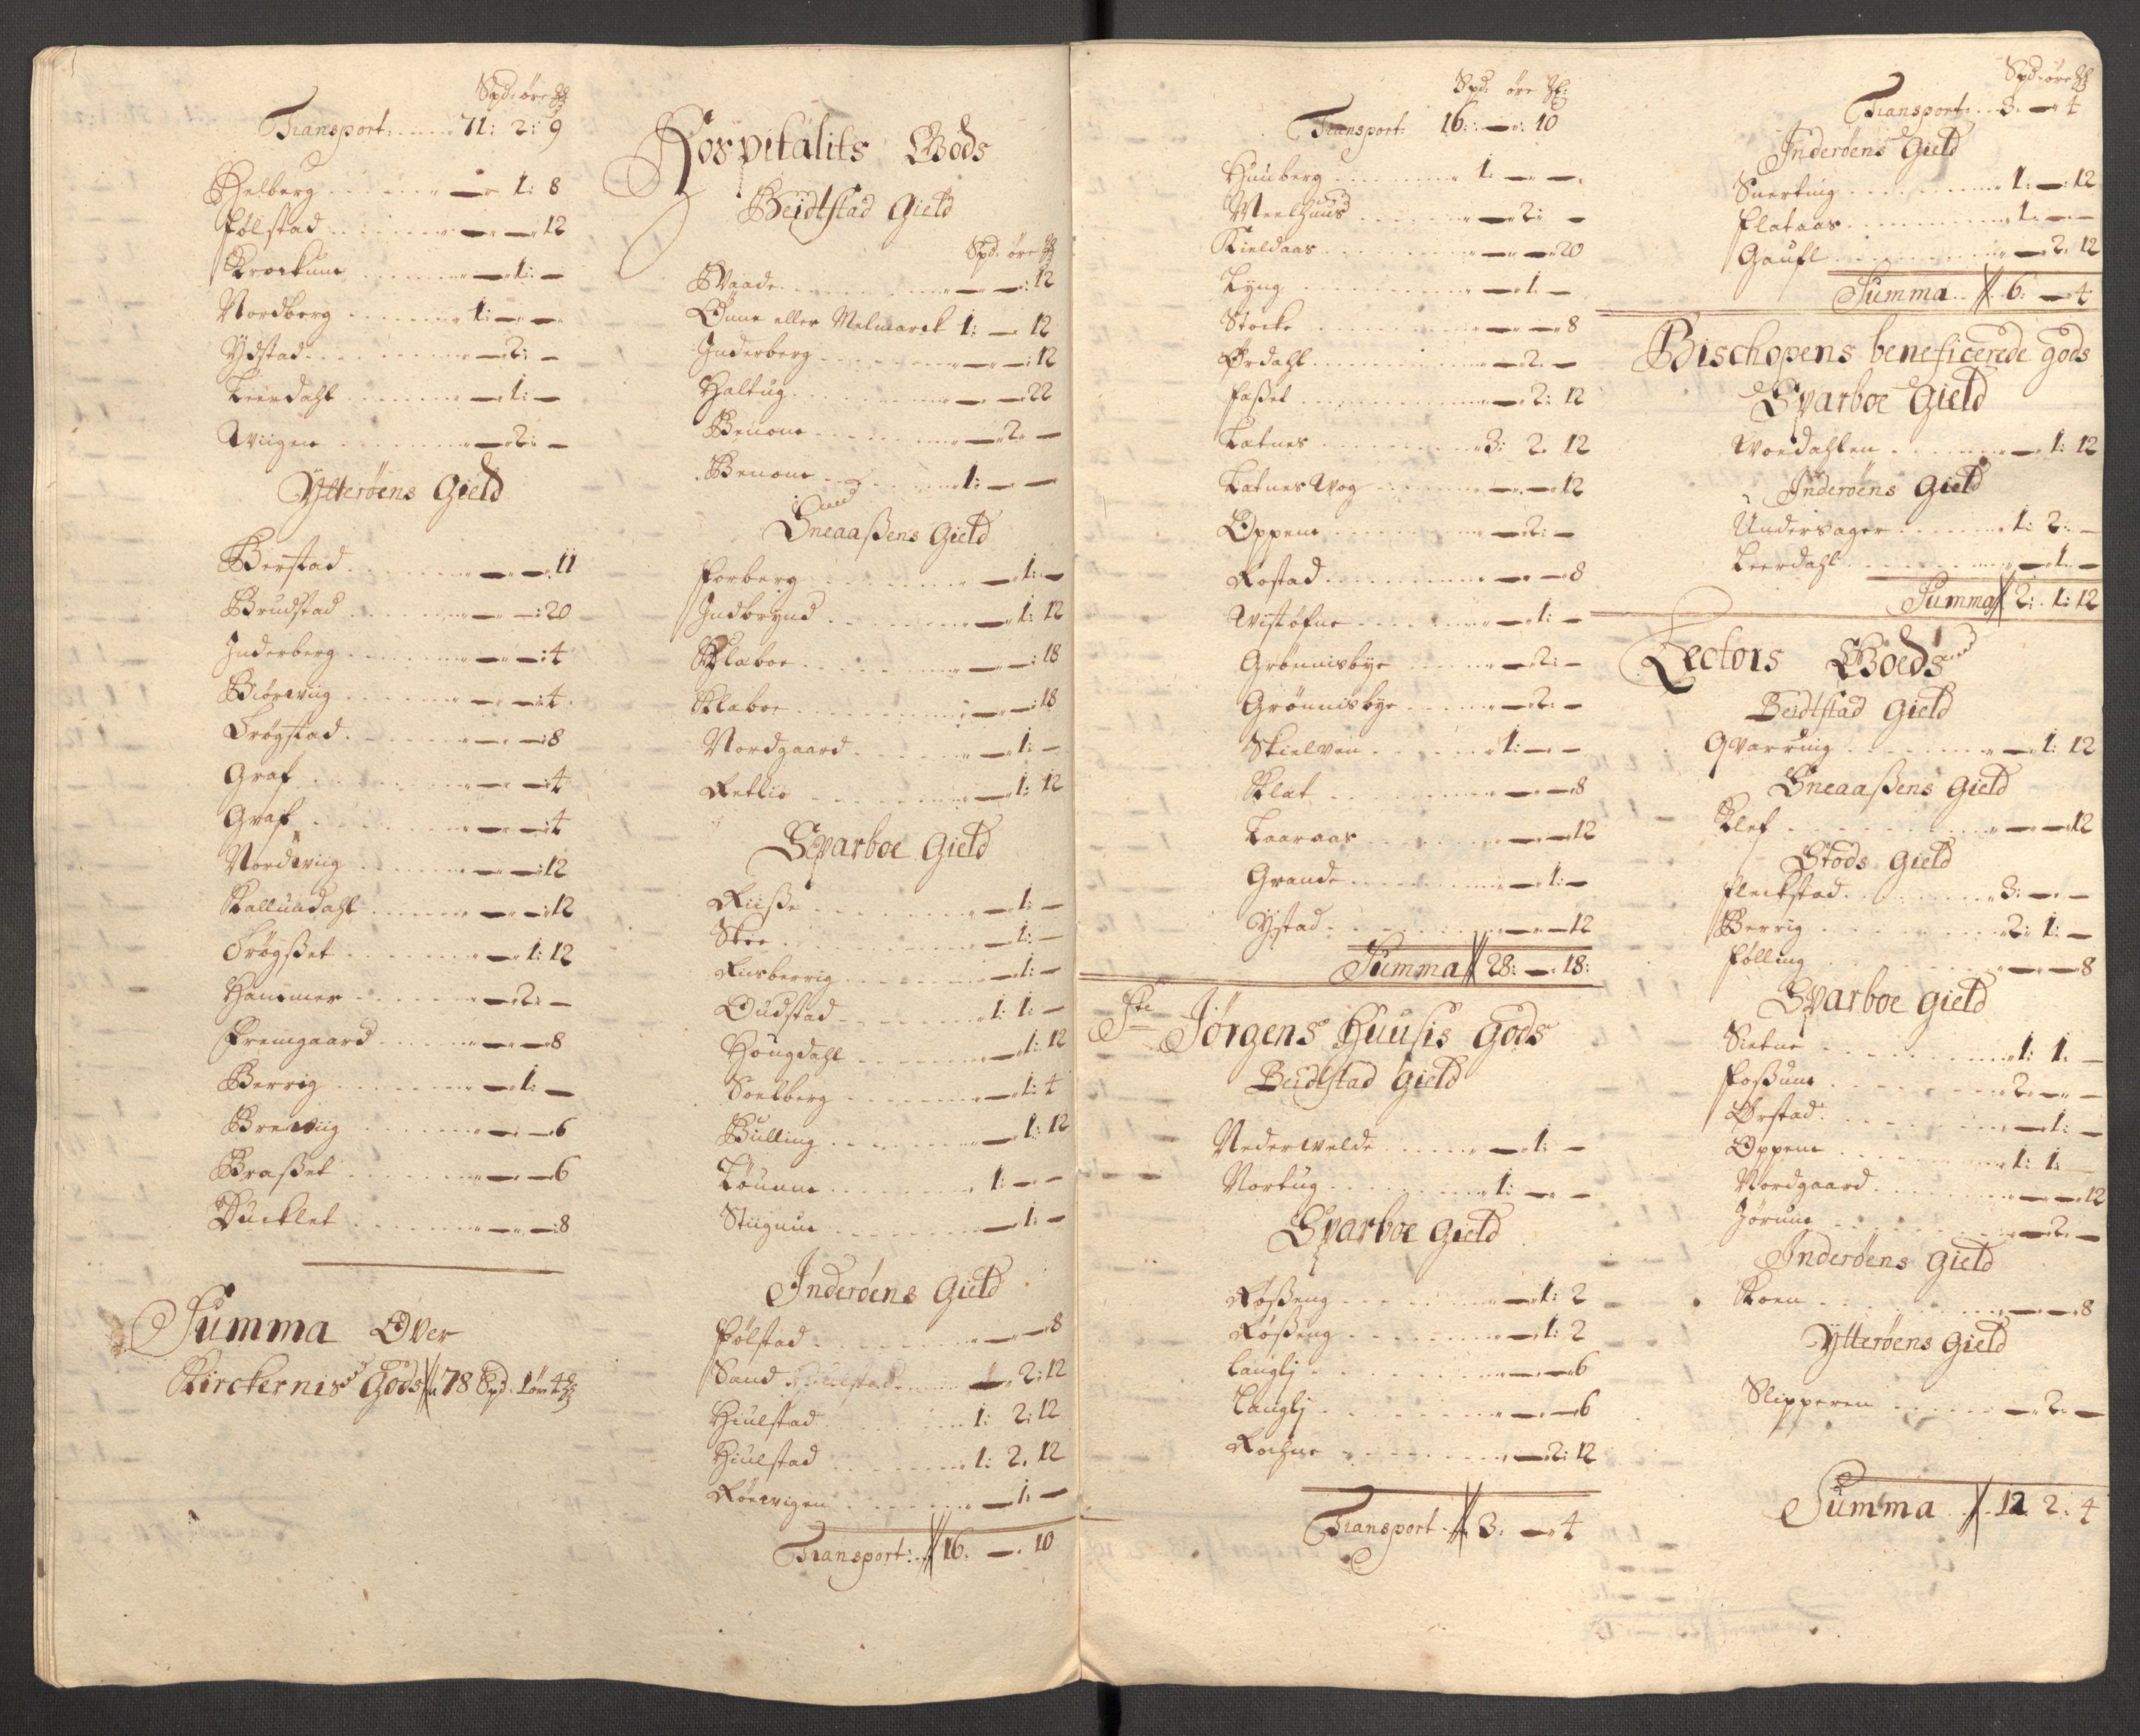 Spd: øre ℔
Transport: 71: 2: 9
Helberg — 1: 8
Følstad — — 12
Krockum — 1: —
Nordborg 1: — —
Ydstad — 2: —
Leerdahl — 1: —
Wiigen — 2: —
Ytterøens Gield
Berstad — — 11
Brudstad — — 20
Inderberg — — 4
Biørwiig — — 4
Trøgstad — — 8
Graf — — 4
Graf — — 4
Nordwiig — — 12
Kallundahl — — 12
Trøgßet — 1: 12
Hammer — 2: —
Fremgaard — — 8
Berrig — 1: —
Brewiig — — 6
Braßet — — 6
Ducklet — — 8
Summa Over
Kirckernis Gods 78 Spd: 1 ør 4 ℔
Hospitalits Gods
Beidtstad Gield
Spd: øre ℔
Waade — — 12
Önne eller Melmarck 1: — 12
Inderberg — — 12
Haltug — — 22
Benom — 2: —
Benom 1: — —
Sneaaßens Gield
Forberg — 1: —
Indbrynd — 1: 12
Klæboe — — 18
Klæboe — — 18
Nordgaard — 1: —
Retlio — 1: 12
Sparboe Gield
Riiße — 1: —
Skee — 1: —
Riisberrig — 1: —
Oudstad 1: 1: —
Hougdahl — 1: 12
Soelberg — 1: 4
Bulling — 1: 12
Tøunne 1: — —
Stiigum — 1: —
Inderøens Gield
Følstad — — 8
Sand — 2: 12
Hiulstad 1: 2: 12
Hiulstad 1: 2: 12
Røewigen — 1: —
Transport: 16: — 10
Spd: øre ℔
Transport: 16: — 10
Hunberg 1: — —
Meelhuus — 2: —
Kieldaas — — 20
Lÿng — 1: —
Stocke — — 8
Ørdahl — 2: —
Foßet — 2: 12
Letnes 3: 2: 12
Letnes Wog — — 12
Oppem — 2: —
Røstad — — 8
Wistøfne — 1: —
Grønnisbye — 2: —
Grønnisbye — 2: —
Skielvan 1: — —
Klæt — — 8
Laaraas — — 12
Grande — 1: —
Ystad — — 12
Summa 28: — 18:
Ste Jørgens Huusis Gods
Beidtstad Gield
Nederwelde — 1: —
Nortug 1: — —
Sparboe Gield
Røßeng — 1: 2
Røßeng — 1: 2
Langlj — — 6
Langlj — — 6
Rochne — 2: 12
Transport 3: — 4
Spd: øre ℔
Transport 3: — 4
Inderøens Gield
Snerting 1: — 12
Flataas 1: — —
Gaufl — 2: 12
Summa 6: — 4
Bischopens beneficerede gods
Sparboe Gield
Woedahlen — 1: 12
Inderøens Gield
Undersager 1: 2: —
Leerdahl — 1: —
Summa 2: 1: 12
Lectors Goeds
Beidtstad Gield
Qvarming — 1: 12
Sneaaßens Gield
Klef — — 12
Stods Gield
Fleckstad 3: — —
Berrig 2: 1: —
Følling — — 8
Sparboe Gield
Sietne 1: 1: —
Foßum 2: — —
Ørstad — 1: —
Oppem 1: 1: —
Nordgaard — — 12
Jørum — 2: —
Inderøens Gield
Koen — — 8
Ytterøens Gield
Slipperen — 2: —
Summa 12 2: 4